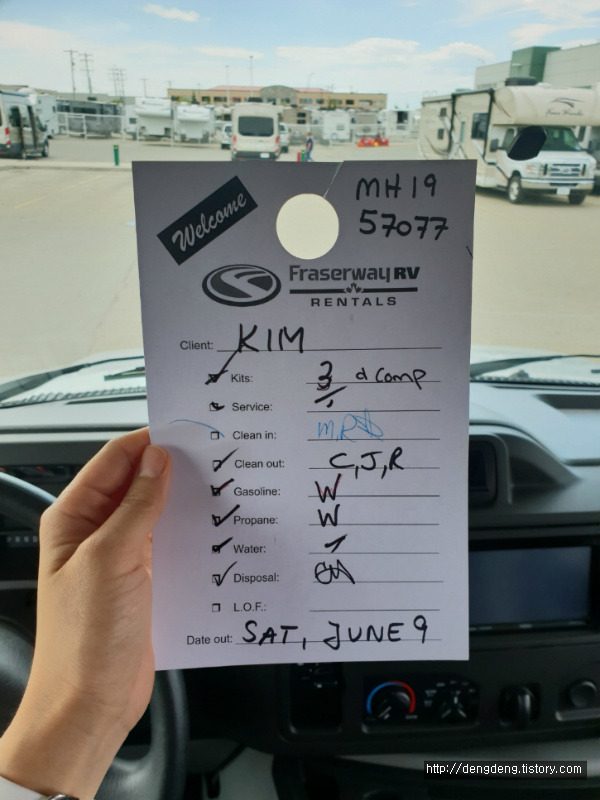 MH19
57077
Welcome
Fraserway RV
RENTALS
Client: KIM
Kits: 3 d comp
Service:
Clean in:
Clean out: C,J,R
Gasoline: W
Propane: W
Water:
Disposal:
L.O.F.:
Date out: SAT, JUNE 9
http://dengdeng.tistory.com